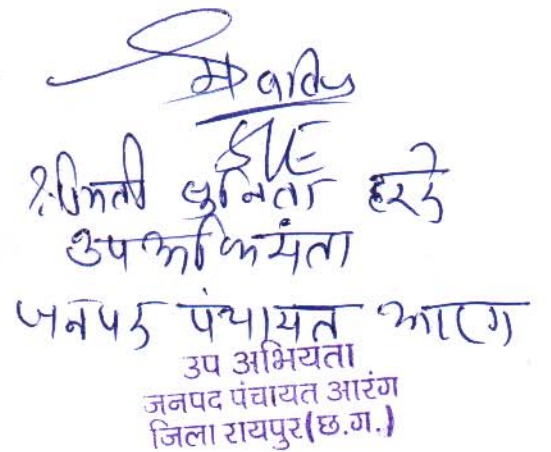 S/E
श्रीमती सुनिता हरडे
उप अभियंता
जनपद पंचायत आरंग
उप अभियंता
जनपद पंचायत आरंग
जिला रायपुर(छ.ग.)